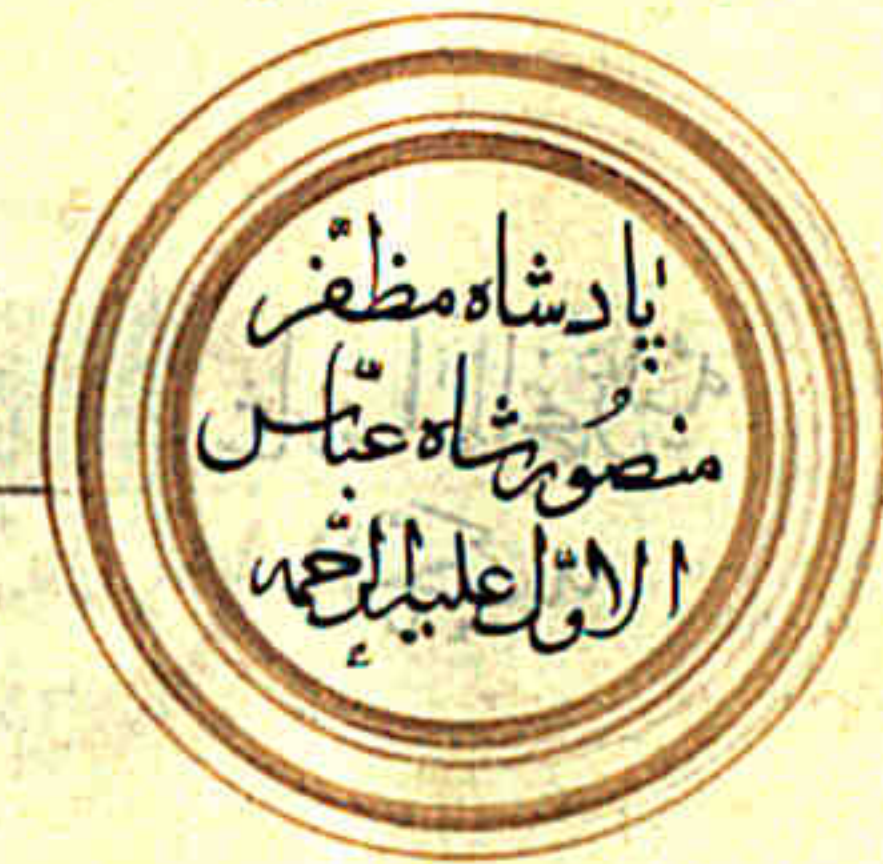 پادشاه مظفّر
منصُور شاه عبّاس
الاوّل علیه الرّحمه